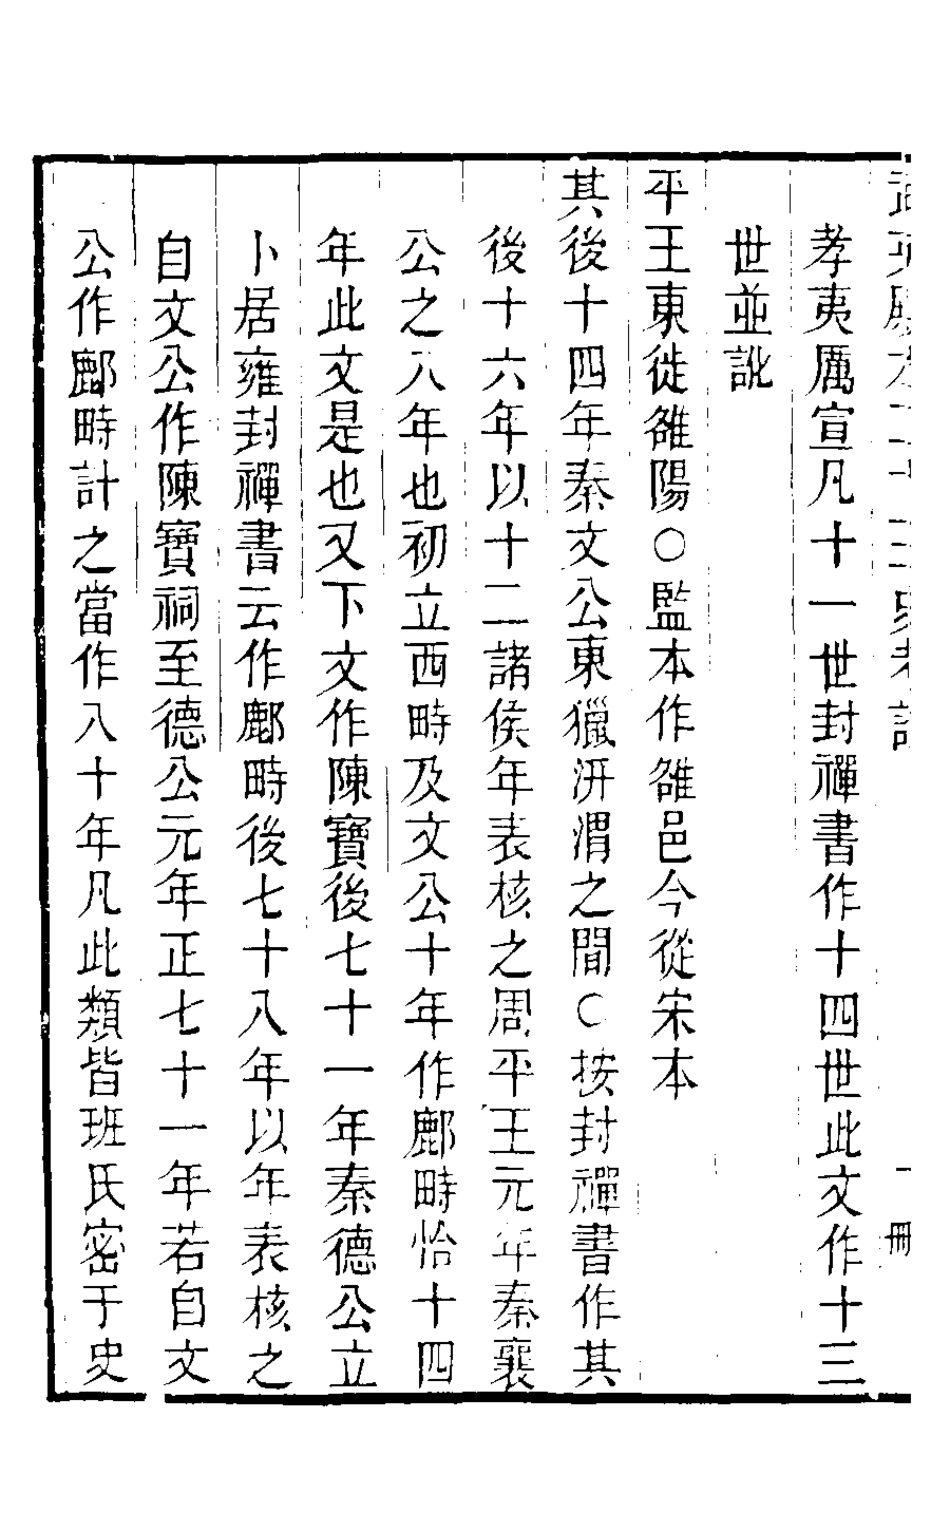 孝夷厲宣凡十一世封禪書作十四世此文作十三
世並訛
平王東徙雒陽○監本作雒邑今從宋本
其後十四年秦文公東獵汧渭之間○按封禪書作其
後十六年以十二諸侯年表核之周平王元年秦襄
公之八年也初立西畤及文公十年作鄜畤恰十四
年此文是也又下文作陳寶後七十一年秦德公立
卜居雍封禪書云作鄜畤後七十八年以年表核之
自文公作陳寶祠至德公元年正七十一年若自文
公作鄜畤計之當作八十年凡此類皆班氏密于史